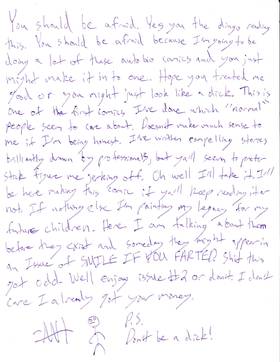 You should be afraid. Yes you the dingo reading
this. You should be afraid because I'm going to be
doing a lot of these autobio comics and you just
might make it in to one. Hope you treated me
good or you might just look like a dick. This is
one of the first comics I've done which "normal"
people seem to care about. Doesn't make much sense to
me if I'm being honest. I've written compelling stories
brilliantly drawn by professionals, but ya'll seem to prefer
stick figure me jerking off. Oh well I'll take it. I'll
be here making this comic if you'll keep reading it or
not. If nothing else I'm painting my legacy for my
future children. Here I am talking about them
before they exist and someday they might appear in
an issue of SMILE IF YOU FARTED. Shit this
got odd. Well enjoy issue #2 or dont. I don't
care I already got your money.
P.S.
Don't be a dick!